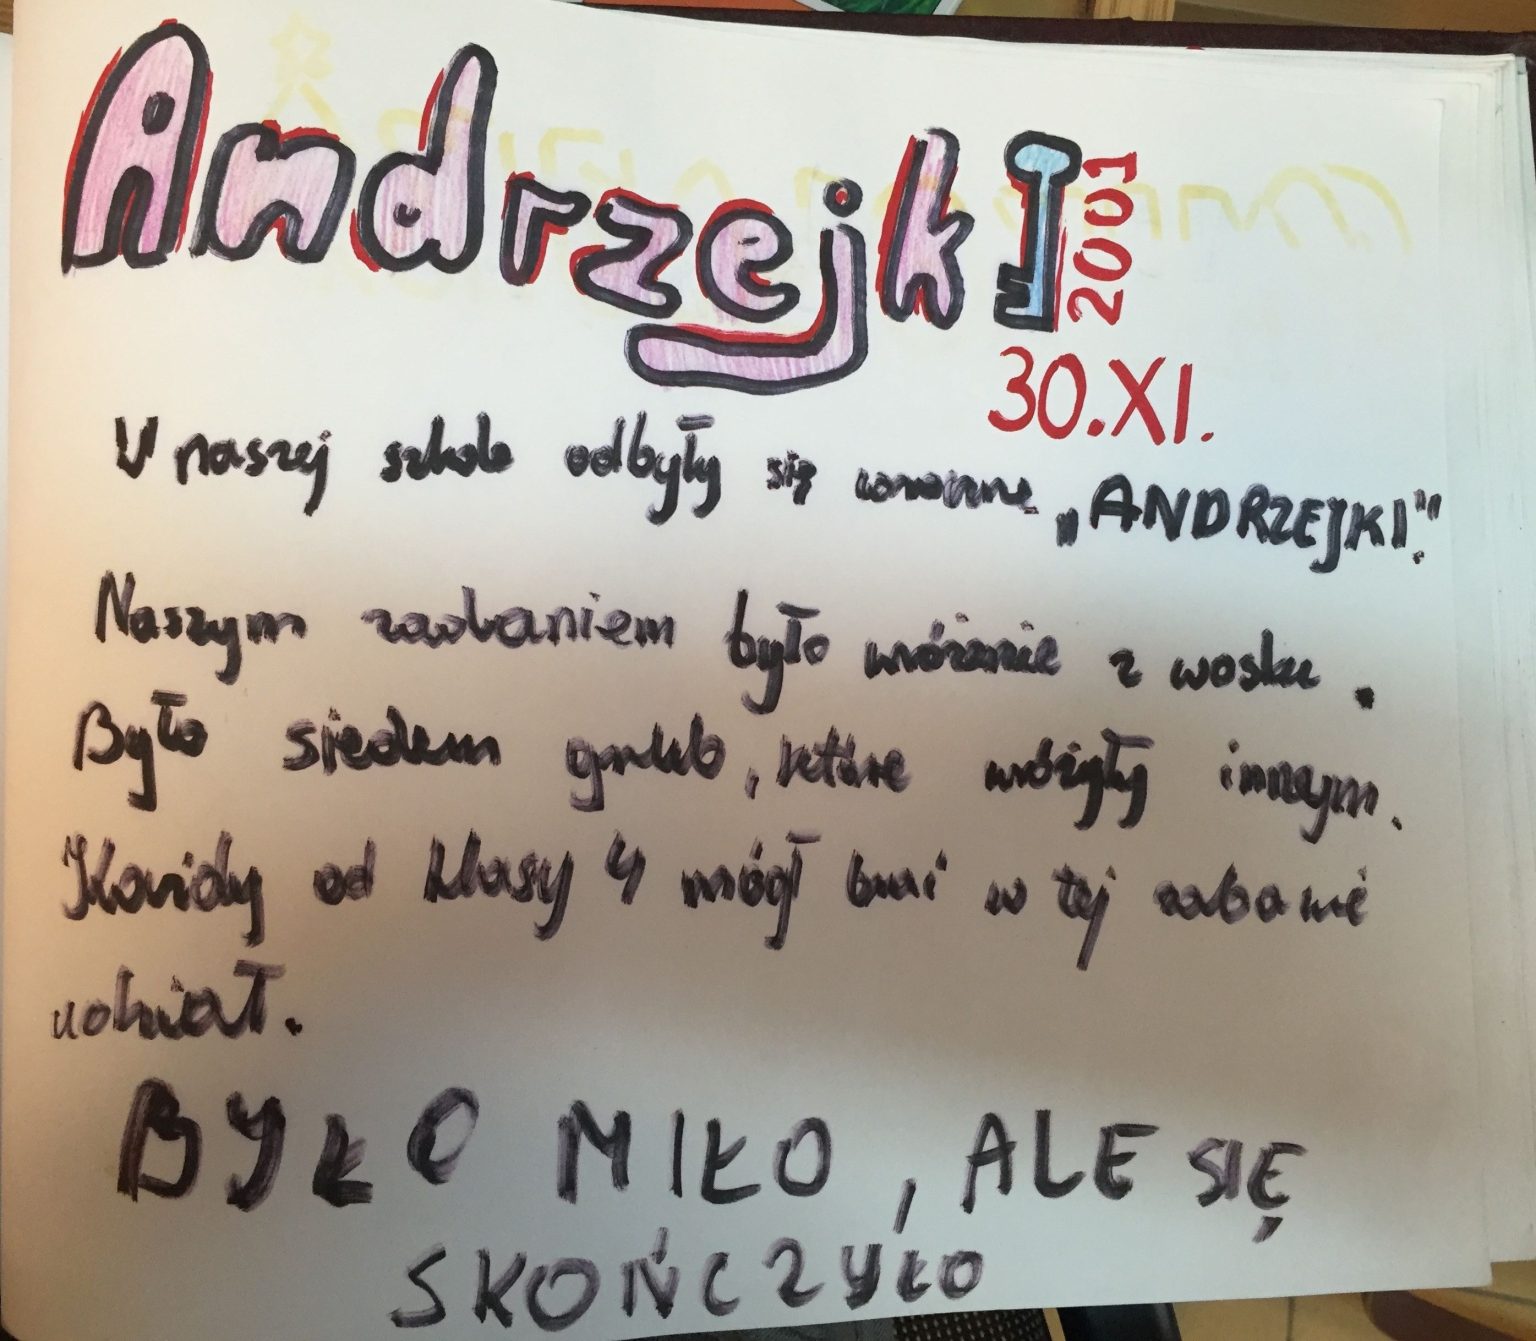 AndrzejkI 2001
30.XI.
W naszej szkole odbyły się coroczne „ANDRZEJKI."
Naszym zadaniem było wróżenie z wosku.
Było siedem grup, które wróżyły innym.
Każdy od klasy 4 mógł brać w tej zabawie
udział.
BYŁO MIŁO, ALE SIĘ
SKOŃCZYŁO